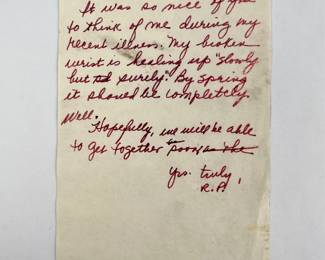 It was so nice of you
to think of me during my
recent illness. My broken
wrist is healing up slowly
but surely. By spring
it should be completely
well.
Hopefully, we will be able
to get together soon as the
Yrs. truly,
R.A.